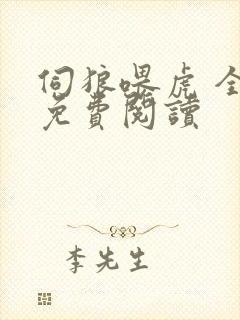 伺狼喂虎 全
免費閱讀
李先生